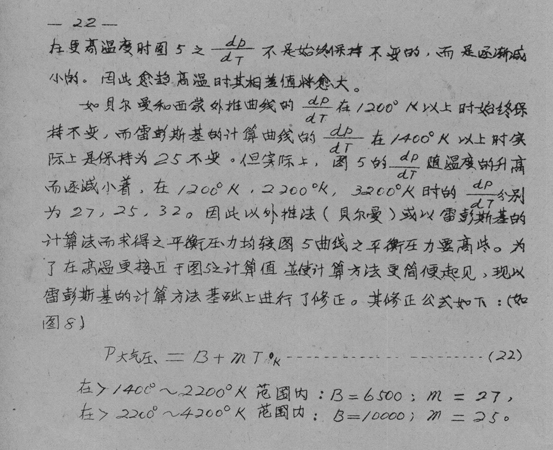 — 22 —
在更高温度时图5之 dp/dT 不是始终保持不变的，而是逐渐减
小的。因此愈趋高温时其相差值将愈大。
如贝尔曼和西蒙外推曲线的 dp/dT 在1200°K以上时始终保
持不变，而雷彭斯基的计算曲线的 dp/dT 在1400°K以上时实
际上是保持为25不变。但实际上，图5的 dp/dT 随温度的升高
而逐减小着，在1200°K，2200°K，3200°K时的 dp/dT 分别
为27，25，32。因此以外推法（贝尔曼）或以雷彭斯基的
计算法而求得之平衡压力均较图5曲线之平衡压力要高些。为
了在高温更接近于图5之计算值 並使计算方法更简便起见，现以
雷彭斯基的计算方法基础上进行了修正。其修正公式如下：（如
图8）
P大气压 = B + mT°K ------------------(22)
在＞1400°～2200°K 范围内：B=6500；m = 27，
在＞2200°～4200°K 范围内：B=10000；m = 25。